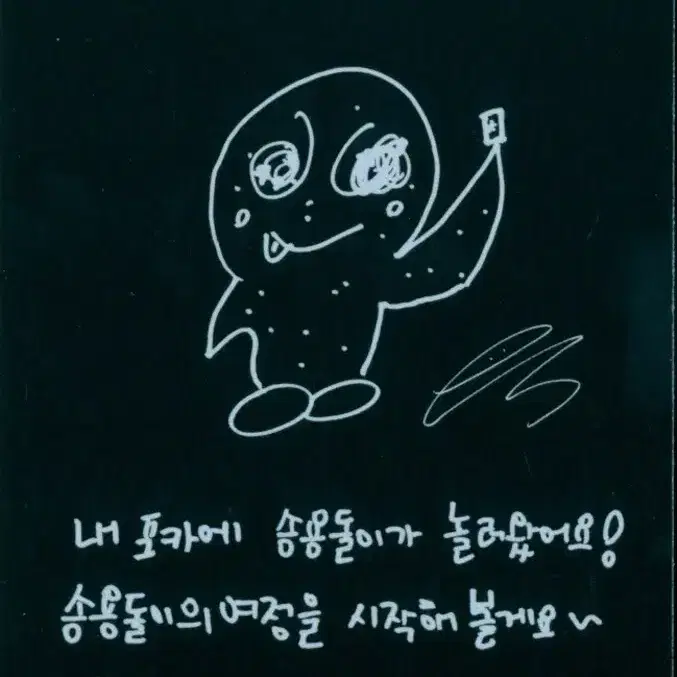 내 포카에 송용둘이가 놀러왔어요!
송용둘이의 여정을 시작해 볼게요~